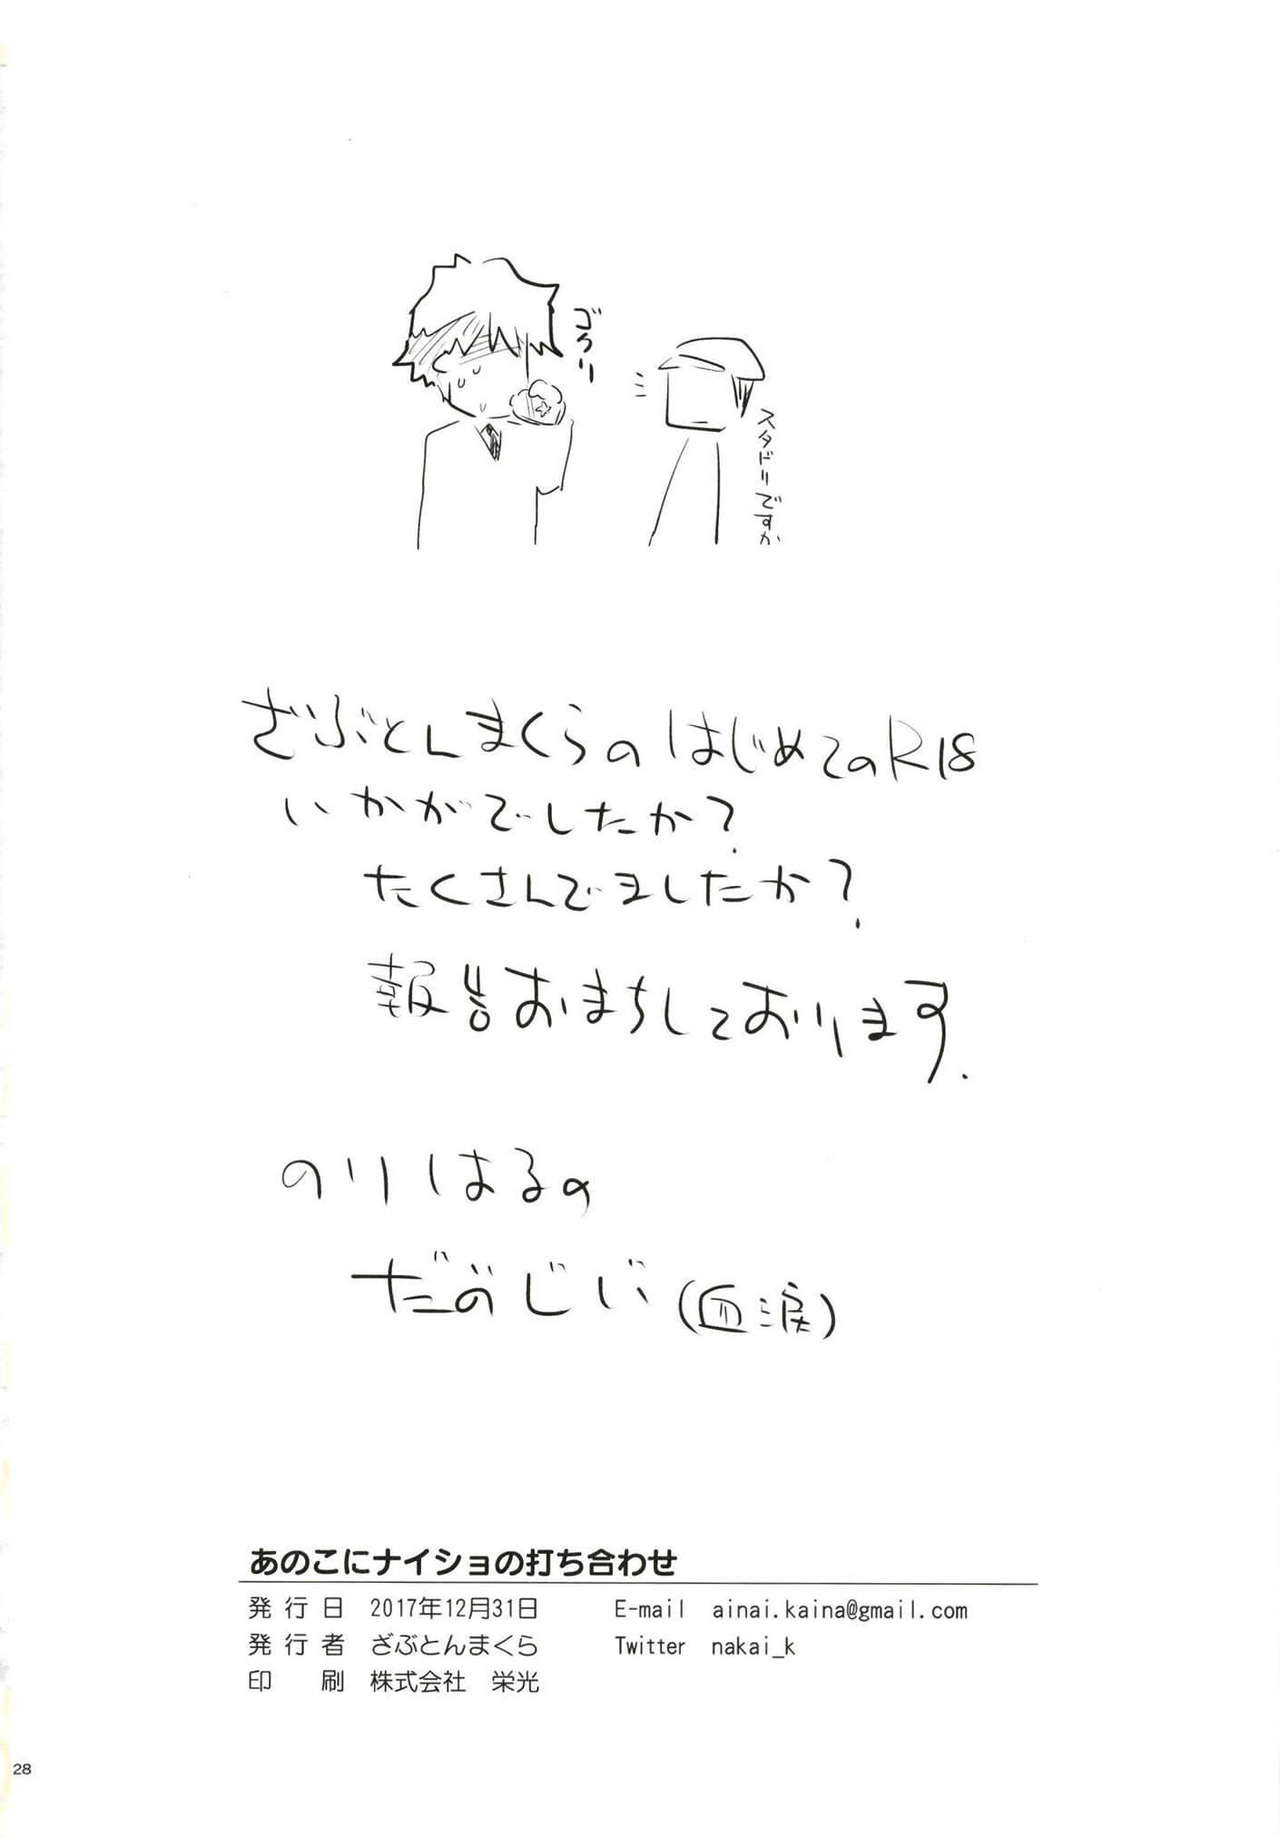 ゴクリ
スタドリですか
ざぶとんまくらのはじめてのR18
いかがでしたか?
たくさんでましたか?
報告おまちしております.
のりはるの
だめじじい(血涙)
あのこにナイショの打ち合わせ
発行日 2017年12月31日 E-mail ainai.kaina@gmail.com
発行者 ざぶとんまくら Twitter nakai_k
印 刷 株式会社 栄光
28